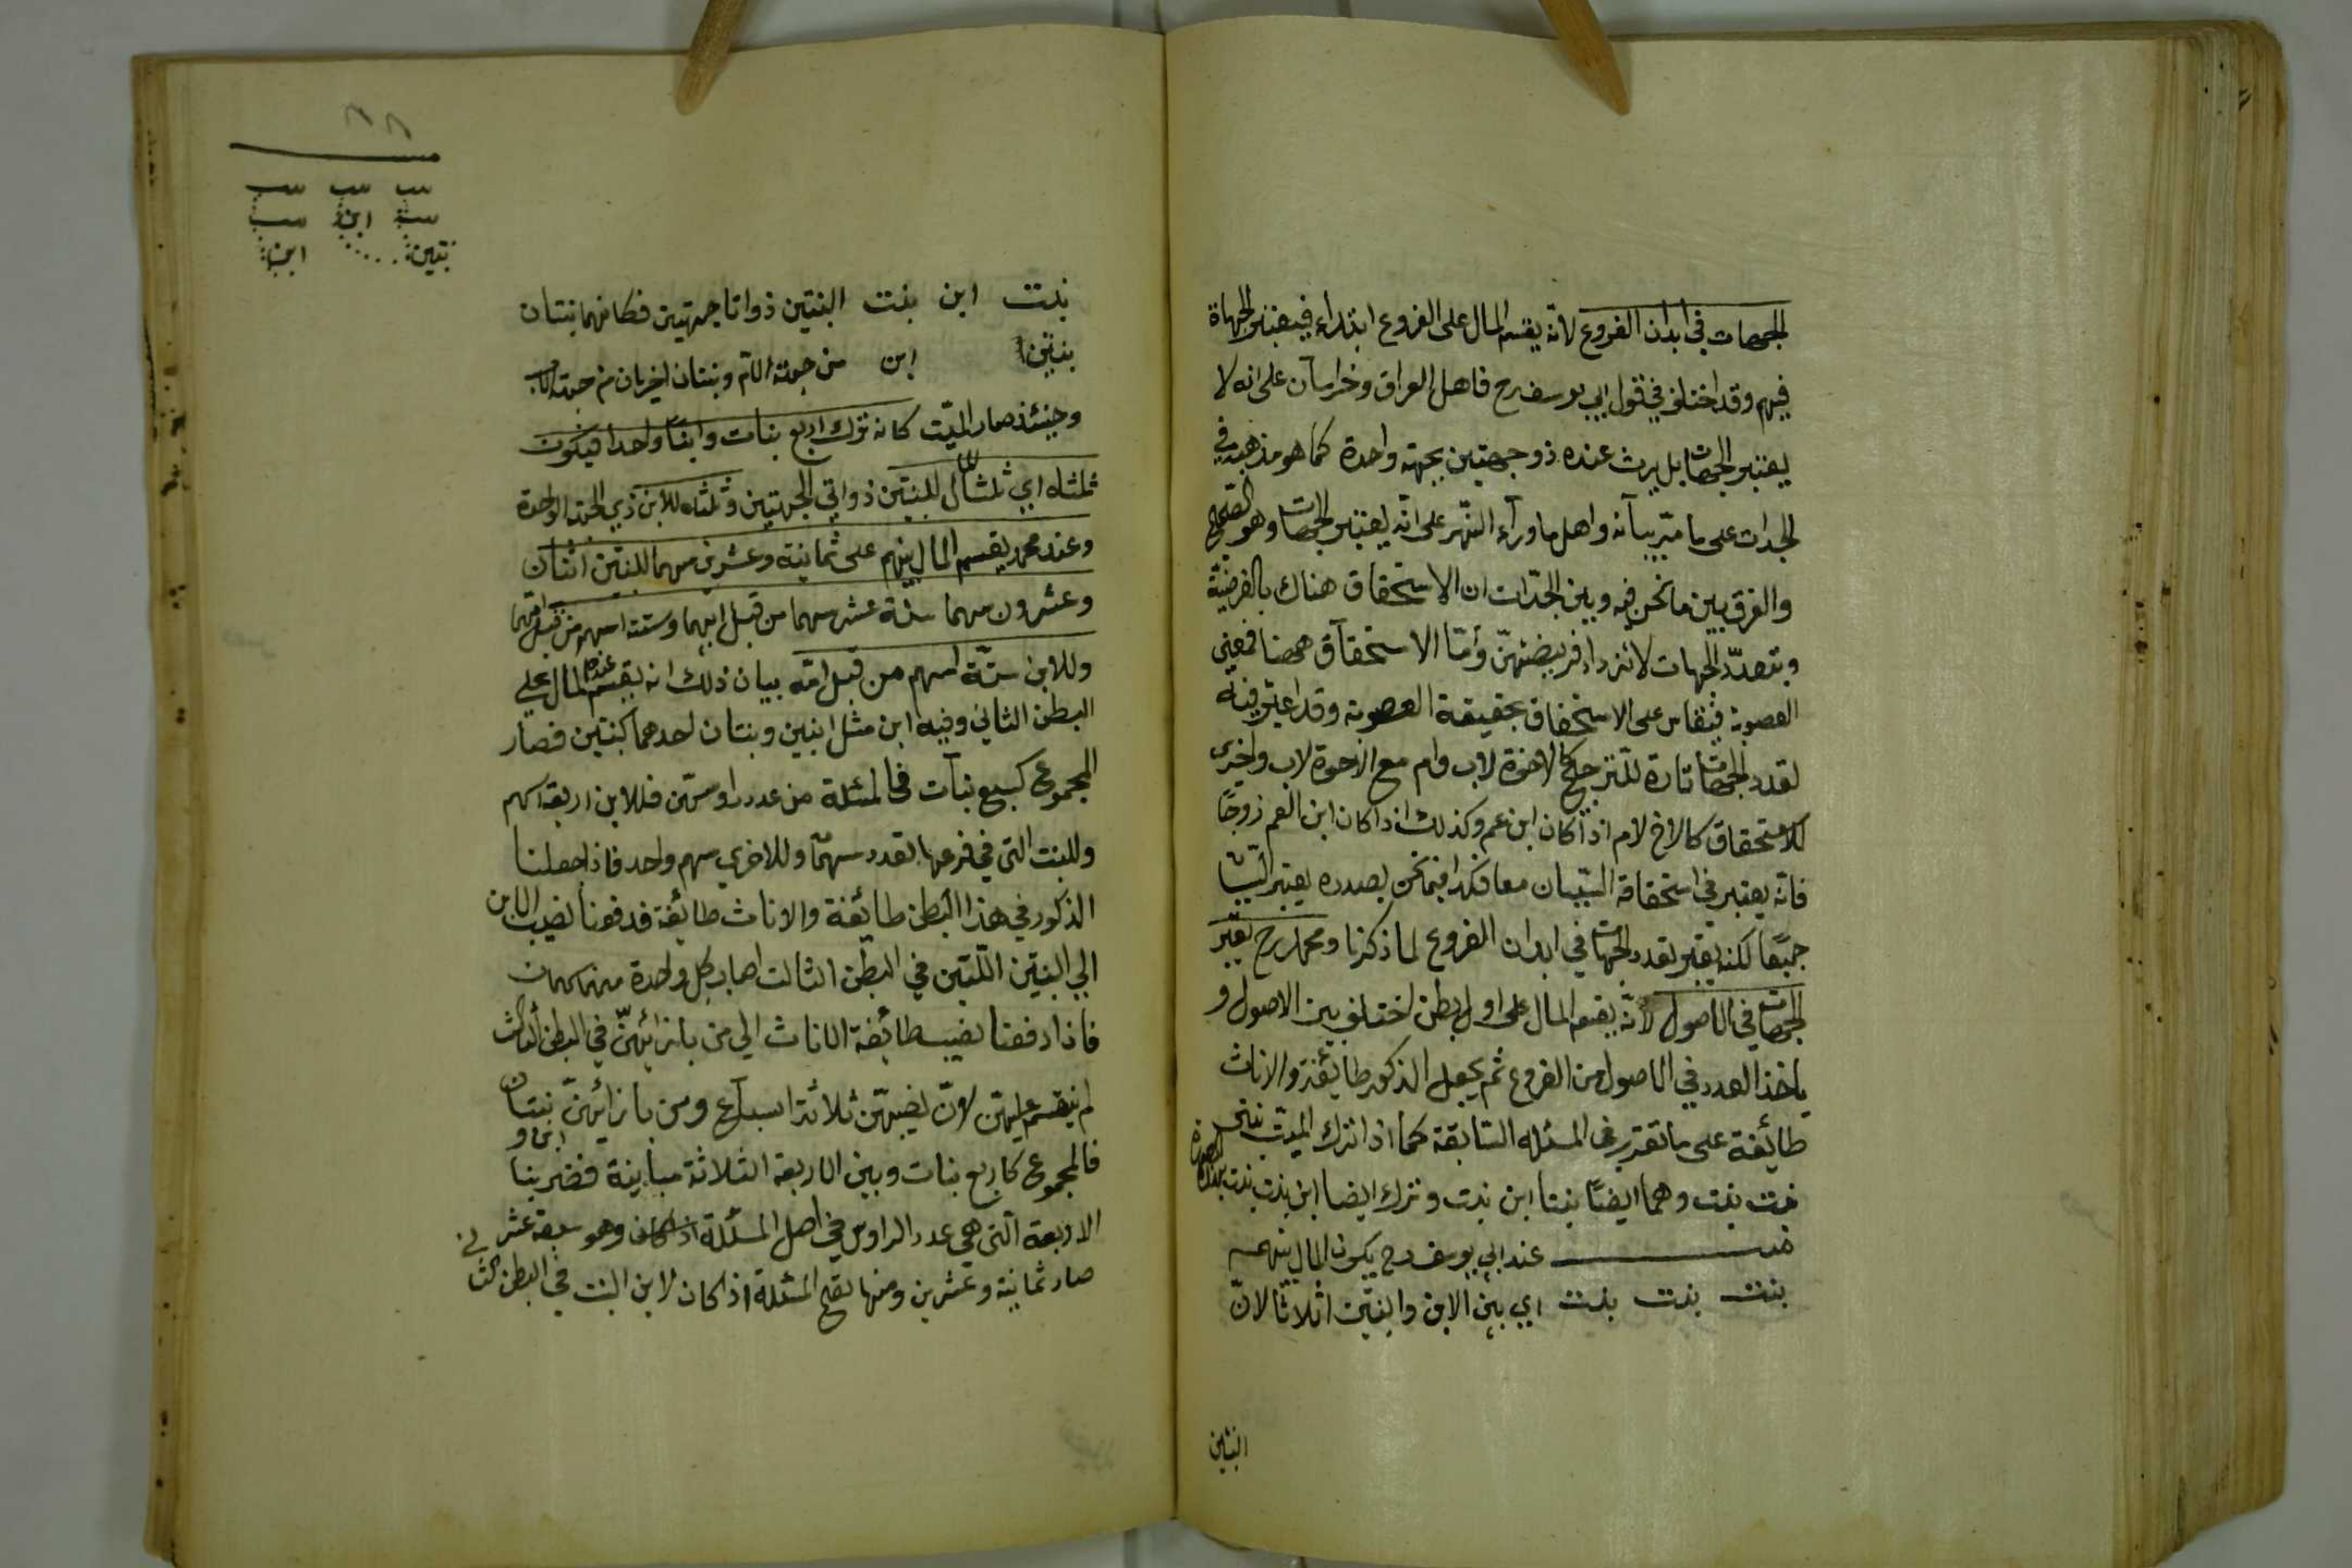 الجهات في ابدان الفروع لانه يقسم المال على الفروع ابتداء فيعتبر الجهاة
فيهم وقد اختلف في قول ابي يوسف رح فاهل العراق وخراسان على انه لا
يعتبر الجهات بل يرث عنده ذو جهتين بجهة واحدة كما هو مذهبه في
الجدات على ما مر بيانه واهل ما ورآء النهر على انه يعتبر الجهات وهو الصحيح
والفرق بين ما نحن فيه وبين الجدّات ان الاستحقاق هناك بالفرضية
وبتعدد الجهات لا تزداد فريضتهن وأما الاستحقاق ههنا فمعنى
العصوبة فيقاس على الاستحقاق بحقيقة العصوبة وقد اعتبر فيه
تعدد الجهات تارة للترجيح كالاخوة لاب وام مع الاخوة لاب واخرى
للاستحقاق كالاخ لام اذا كان ابن عم وكذلك اذا كان ابن العم زوجًا
فانه يعتبر في استحقاقه السببان معا فكذا فيما نحن بصدده يعتبر
جميعًا لكنه يعتبر تعدد الجهات في ابدان الفروع لما ذكرنا ومحمد رح يعتبر
الجهات في الاصول لانّه يقسم المال على اول بطن اختلف بين الاصول و
ياخذ العدد في الاصول من الفروع ثم يجعل الذكور طائفة والاناث
طائفة على ما تقدير في المسئله السابقة كما اذا ترك الميت بنتي
بنت بنت وهما ايضًا بنتا ابن بنت وترك ايضا ابن بنت بنت بهذه الصورة
عند ابي يوسف رح يكون المال بينهم
بنت بنت بنت اي بين الابن والبنتين اثلاثا لانّ
البنتين
بنت ابن بنت البنتين ذواتا جهتين فكانهما بنتان
بنتين ابن من جهة الام وبنتان اخريان من جهة الاب
وحينئذ صار الميّت كانه ترك اربع بنات وابنًا واحدا فيكون
ثلثاه اي ثلثا المال للبنتين ذواتي الجهتين وثلثه للابن ذي الجهة الواحدة
وعند محمد يقسم المال بينهم على ثمانية وعشرين سهما للبنتين اثنان
وعشرون سهما ستة عشر سهما من قبل ابيهما وستة اسهم من قبل امهما
وللابن ستّة اسهم من قبل امّه بيان ذلك انه يقسم عنده المال على
البطن الثاني وفيه ابن مثل ابنين وبنتان احدهما كبنتين فصار
المجموع كسبع بنآت فالمسئلة من عدد رؤسهن فللابن اربعة اسهم
وللبنت التي في فرعها تعدد سهمآ وللاخري سهم واحد فاذا جعلنا
الذكور في هذا البطن طائفة والاناث طائفة فدفعنا نصيب الابن
الي البنتين اللتين في البطن الثالث اصاب كل واحدة منهما سهمان
فاذا دفعنا نصيب طائفة الاناث الي من بازائهنّ في البطن الثالث
لم ينقسم عليهن لانّ نصيبهنّ ثلاثة اسباع ومن بازائهنّ بنتان
ابن و
فالمجموع كاربع بنات وبين الاربعة الثلاثة مباينة فضربنا
الاربعة التي هي عدد الراوس في اصل المسئلة وهو سبعة
صار ثمانية وعشرين ومنها تصح المسئلة اذ كان لابن البنت في البطن الثا
بنت بنت بنت
بنت ابن بنت
بنتين ابن